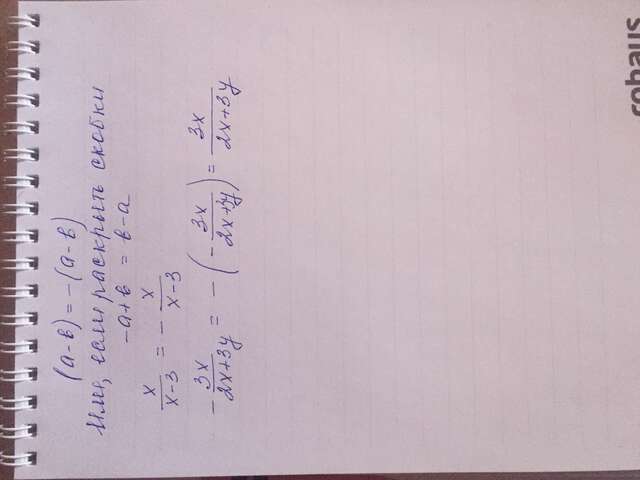 (а-в) = -(а-в)
Или, если раскрыть скобки
-а+в = в-а
x/(x-3) = - x/(x-3)
- 3x/(2x+3y) = - (- 3x/(2x+3y)) = 3x/(2x+3y)
rohaus